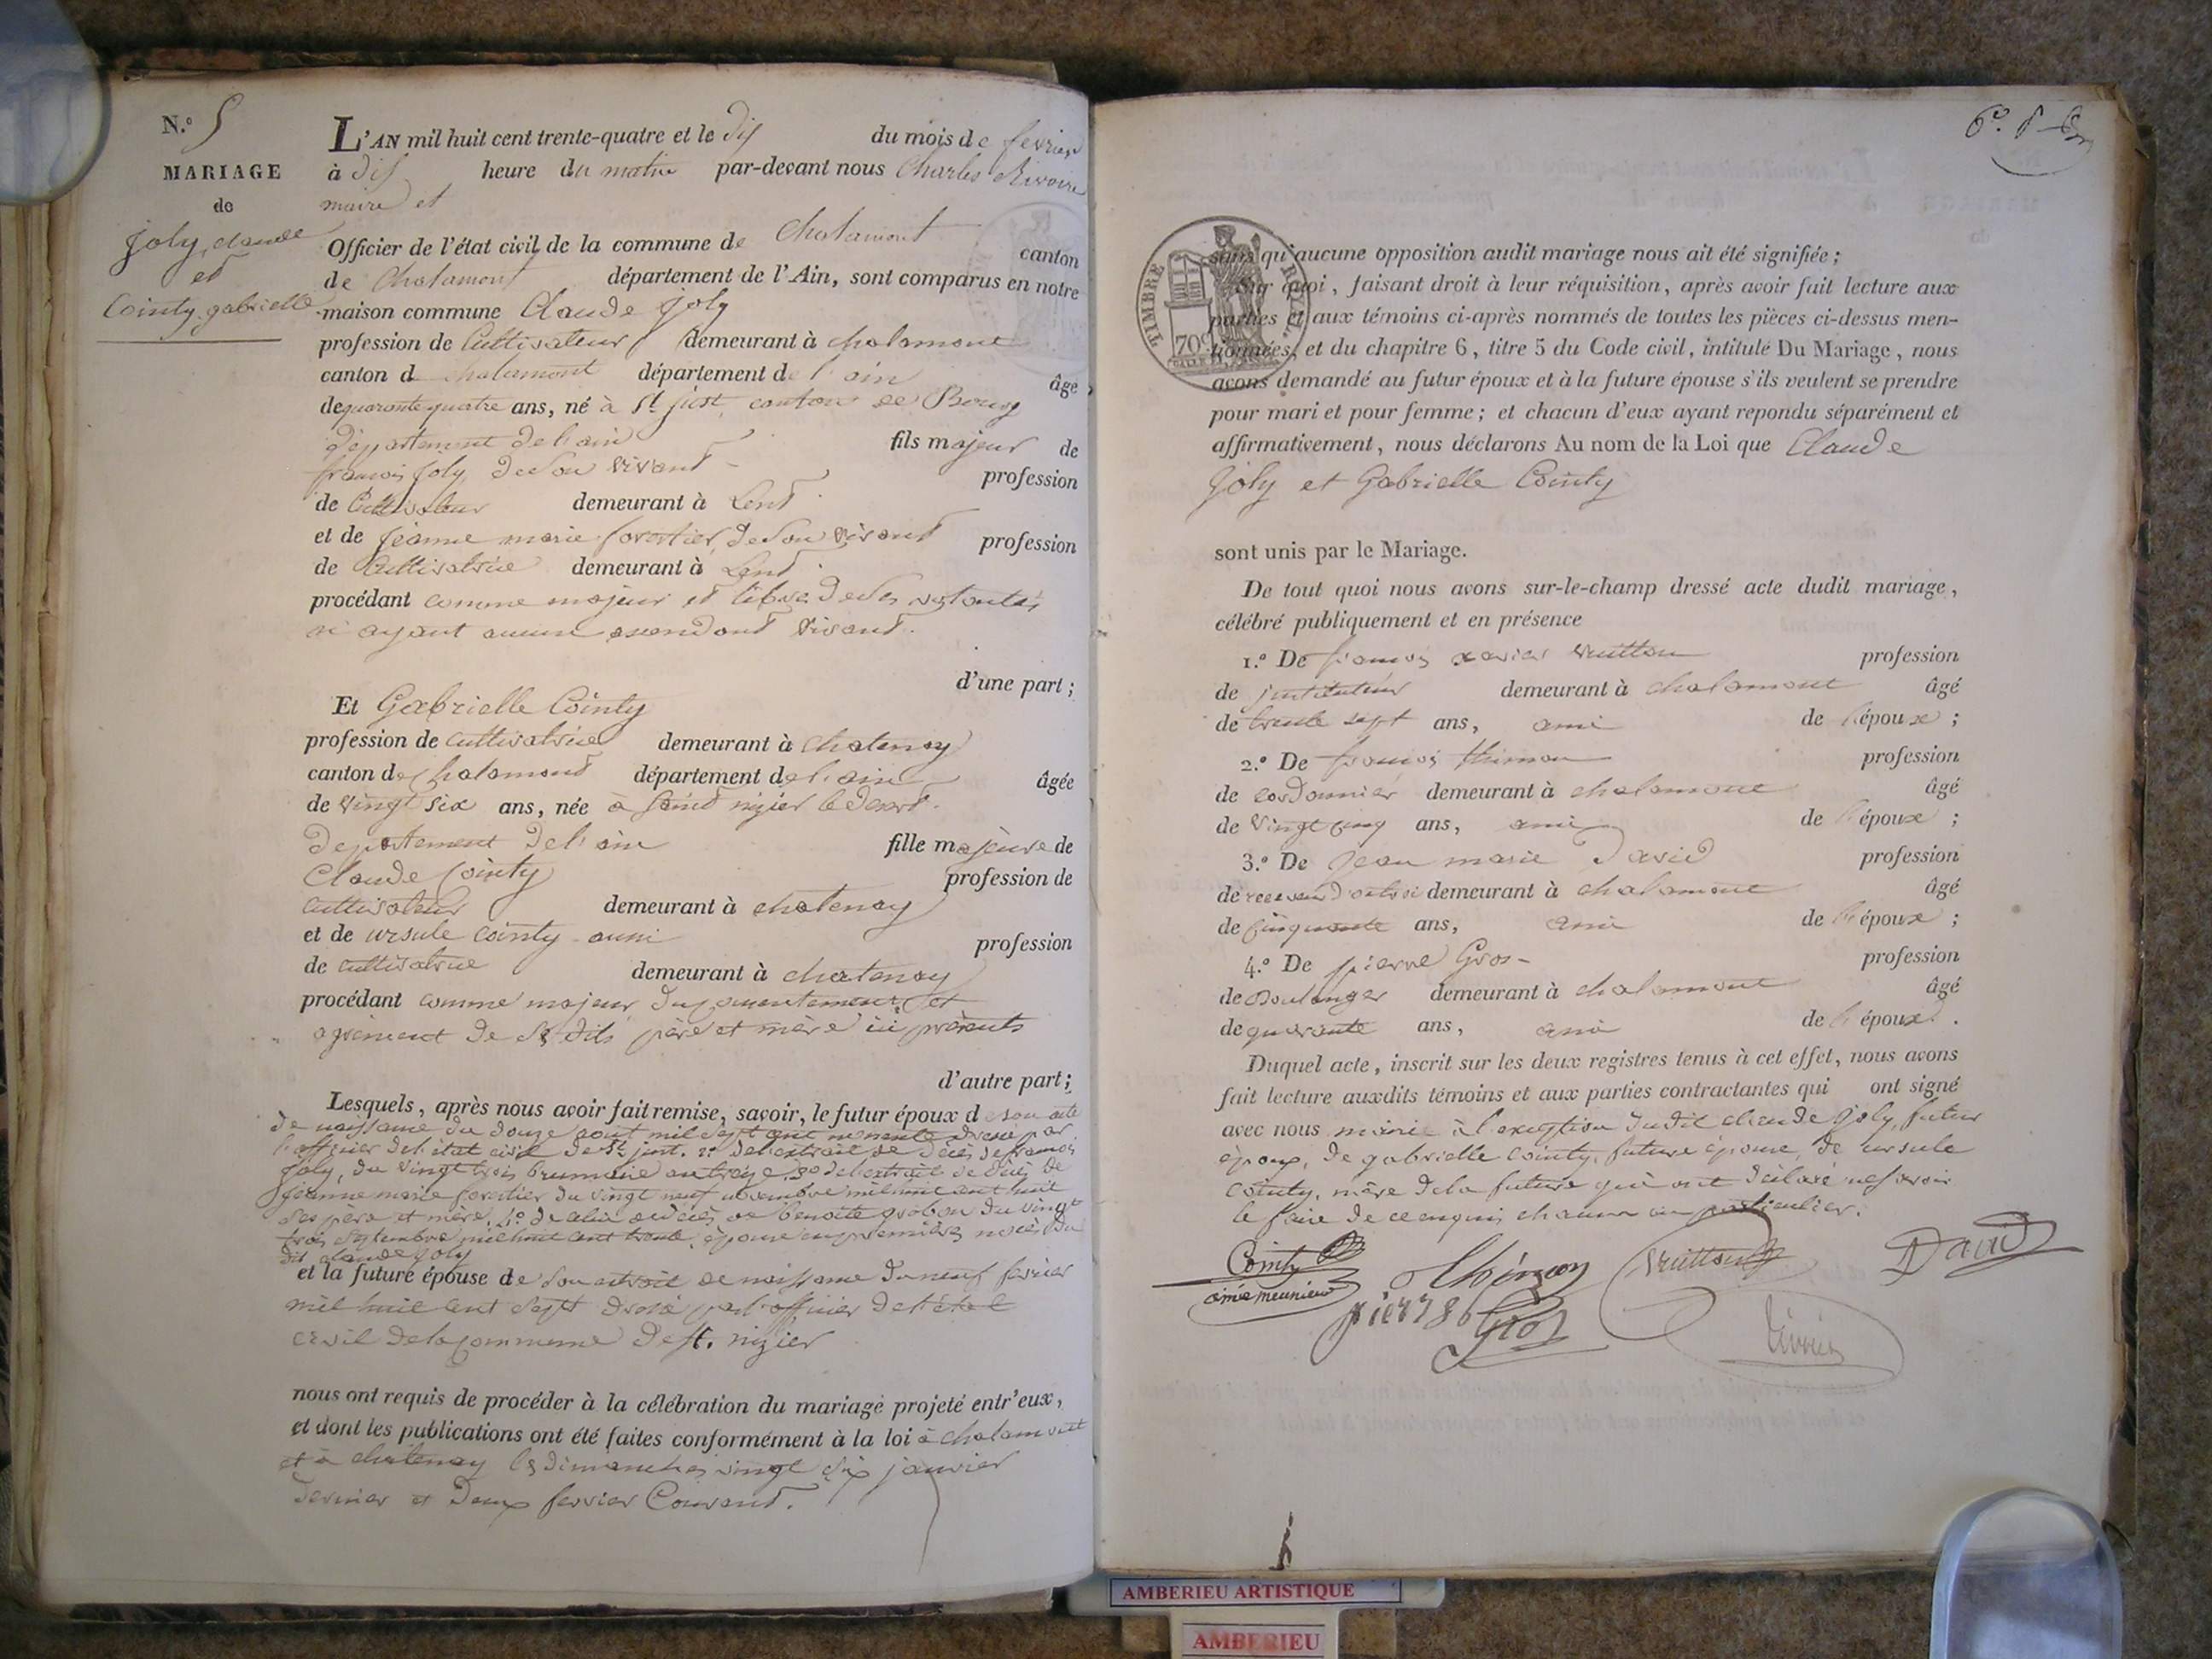 N.o 5
MARIAGE
de
joly, claude
et
Cointy gabrielle
L'AN mil huit cent trente-quatre et le dix du mois de fevrier
à dix heure du matin par-devant nous Charles Rivoire
maire et
Officier de l'état civil de la commune de Chalamont canton
de Chalamont département de l'Ain, sont comparus en notre
maison commune Claude joly
profession de Cultivateur demeurant à chalamont
canton d chalamont département de l'ain âgé
de quarante quatre ans, né à St just canton de Bourg
département de l'ain fils majeur de
francois joly, de son vivant profession
de Cultivateur demeurant à Lent
et de jeanne marie forestier, de son vivant profession
de Cultivatrice demeurant à Lent
procédant comme majeur et libre de ses volontés
n'ayant aucun ascendant vivant.
d'une part;
Et Gabrielle Cointy
profession de cultivatrice demeurant à chatenay
canton de chalamont département de l'ain âgée
de vingt six ans, née à saint nizier le desert.
departement de l'ain fille majeure de
Claude Cointy profession de
cultivateur demeurant à chatenay
et de ursule cointy profession
de cultivatrice demeurant à chatenay
procédant comme majeur du consentement et
agrément de ses dits père et mère ici présents
d'autre part;
Lesquels, après nous avoir fait remise, savoir, le futur époux de son acte
de naissance du douze aout mil sept cent nonante dressé par
l'officier de l'état civil de St just. 2o de l'extrait de décès de francois
joly, du vingt trois brumaire an treize 3o de l'extrait de décès de
jeanne marie forestier du vingt neuf novembre mil huit cent huit
ses père et mère. 4o de celui de décès de benoite grobon du vingt
trois septembre mil huit cent trente, épouse en premières noces du
dit claude joly
et la future épouse de son extrait de naissance du neuf fevrier
mil huit cent sept dressé par l'officier de l'état
civil de la commune de st. nizier
nous ont requis de procéder à la célébration du mariage projeté entr'eux,
et dont les publications ont été faites conformément à la loi à chalamont
et à chatenay les dimanches vingt six janvier
dernier et deux fevrier Courant.
TIMBRE ROYAL
70c
sans qu'aucune opposition audit mariage nous ait été signifiée;
Sur quoi, faisant droit à leur réquisition, après avoir fait lecture aux
parties et aux témoins ci-après nommés de toutes les pièces ci-dessus men-
tionnées, et du chapitre 6, titre 5 du Code civil, intitulé Du Mariage, nous
avons demandé au futur époux et à la future épouse s'ils veulent se prendre
pour mari et pour femme; et chacun d'eux ayant repondu séparément et
affirmativement, nous déclarons Au nom de la Loi que Claude
joly et Gabrielle Cointy
sont unis par le Mariage.
De tout quoi nous avons sur-le-champ dressé acte dudit mariage,
célébré publiquement et en présence
1.o De francois xavier vuitton profession
de jnstituteur demeurant à chalamont âgé
de trente sept ans, ami de l'époux;
2.o De francois thimon profession
de cordonnier demeurant à chalamont âgé
de vingt cinq ans, ami de l'époux;
3.o De jean marie david profession
de demeurant à chalamont âgé
de cinquante ans, ami de l'époux;
4.o De pierre Gros profession
de Boulanger demeurant à chalamont âgé
de quarante ans, ami de l'époux.
Duquel acte, inscrit sur les deux registres tenus à cet effet, nous avons
fait lecture auxdits témoins et aux parties contractantes qui ont signé
avec nous maire à l'exception dudit claude joly, futur
époux, de gabrielle cointy, future épouse, de ursule
cointy, mère de la future qui ont déclaré ne savoir
le faire de ce enquis chacun en particulier.
Cointy
Vuitton
David
aimé meunier
pierre Gros
Rivoire
AMBERIEU ARTISTIQUE
AMBERIEU